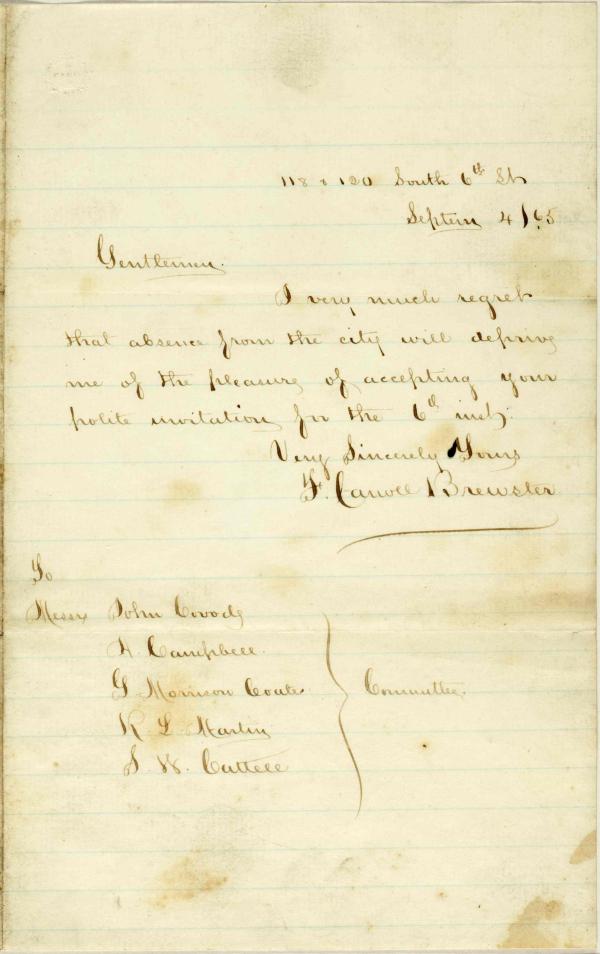 118 & 120 South 6th St
Septem 4/65
Gentlemen.
I very much regret
that absence from the city will deprive
me of the pleasure of accepting your
polite invitation for the 6th inst.
Very Sincerely Yours
F. Carroll Brewster
To
Messrs John Covode
H. Campbell.
G Morrison Coates
R L Martin
S W. Cattell
Committee.